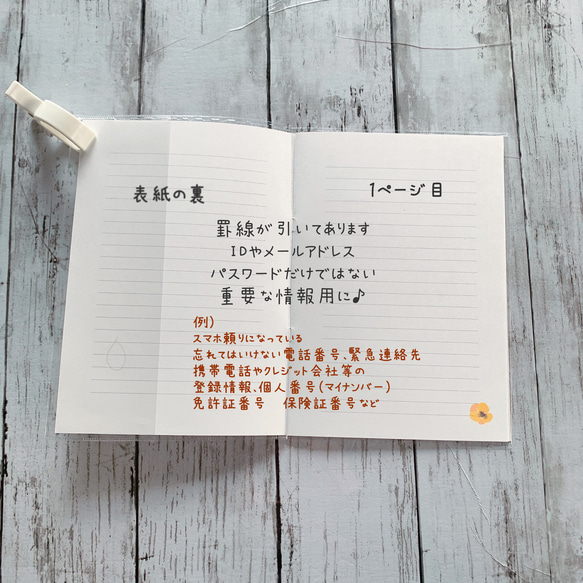 表紙の裏
1ページ目
罫線が引いてあります
IDやメールアドレス
パスワードだけではない
重要な情報用に♪
例)
スマホ頼りになっている
忘れてはいけない電話番号、緊急連絡先
携帯電話やクレジット会社等の
登録情報、個人番号(マイナンバー)
免許証番号 保険証番号など